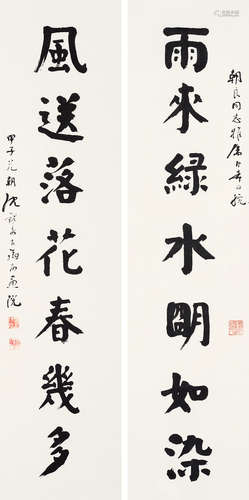 朝良同志雅屬即希正捥
雨來綠水明如染
風送落花春幾多
甲子花朝沈